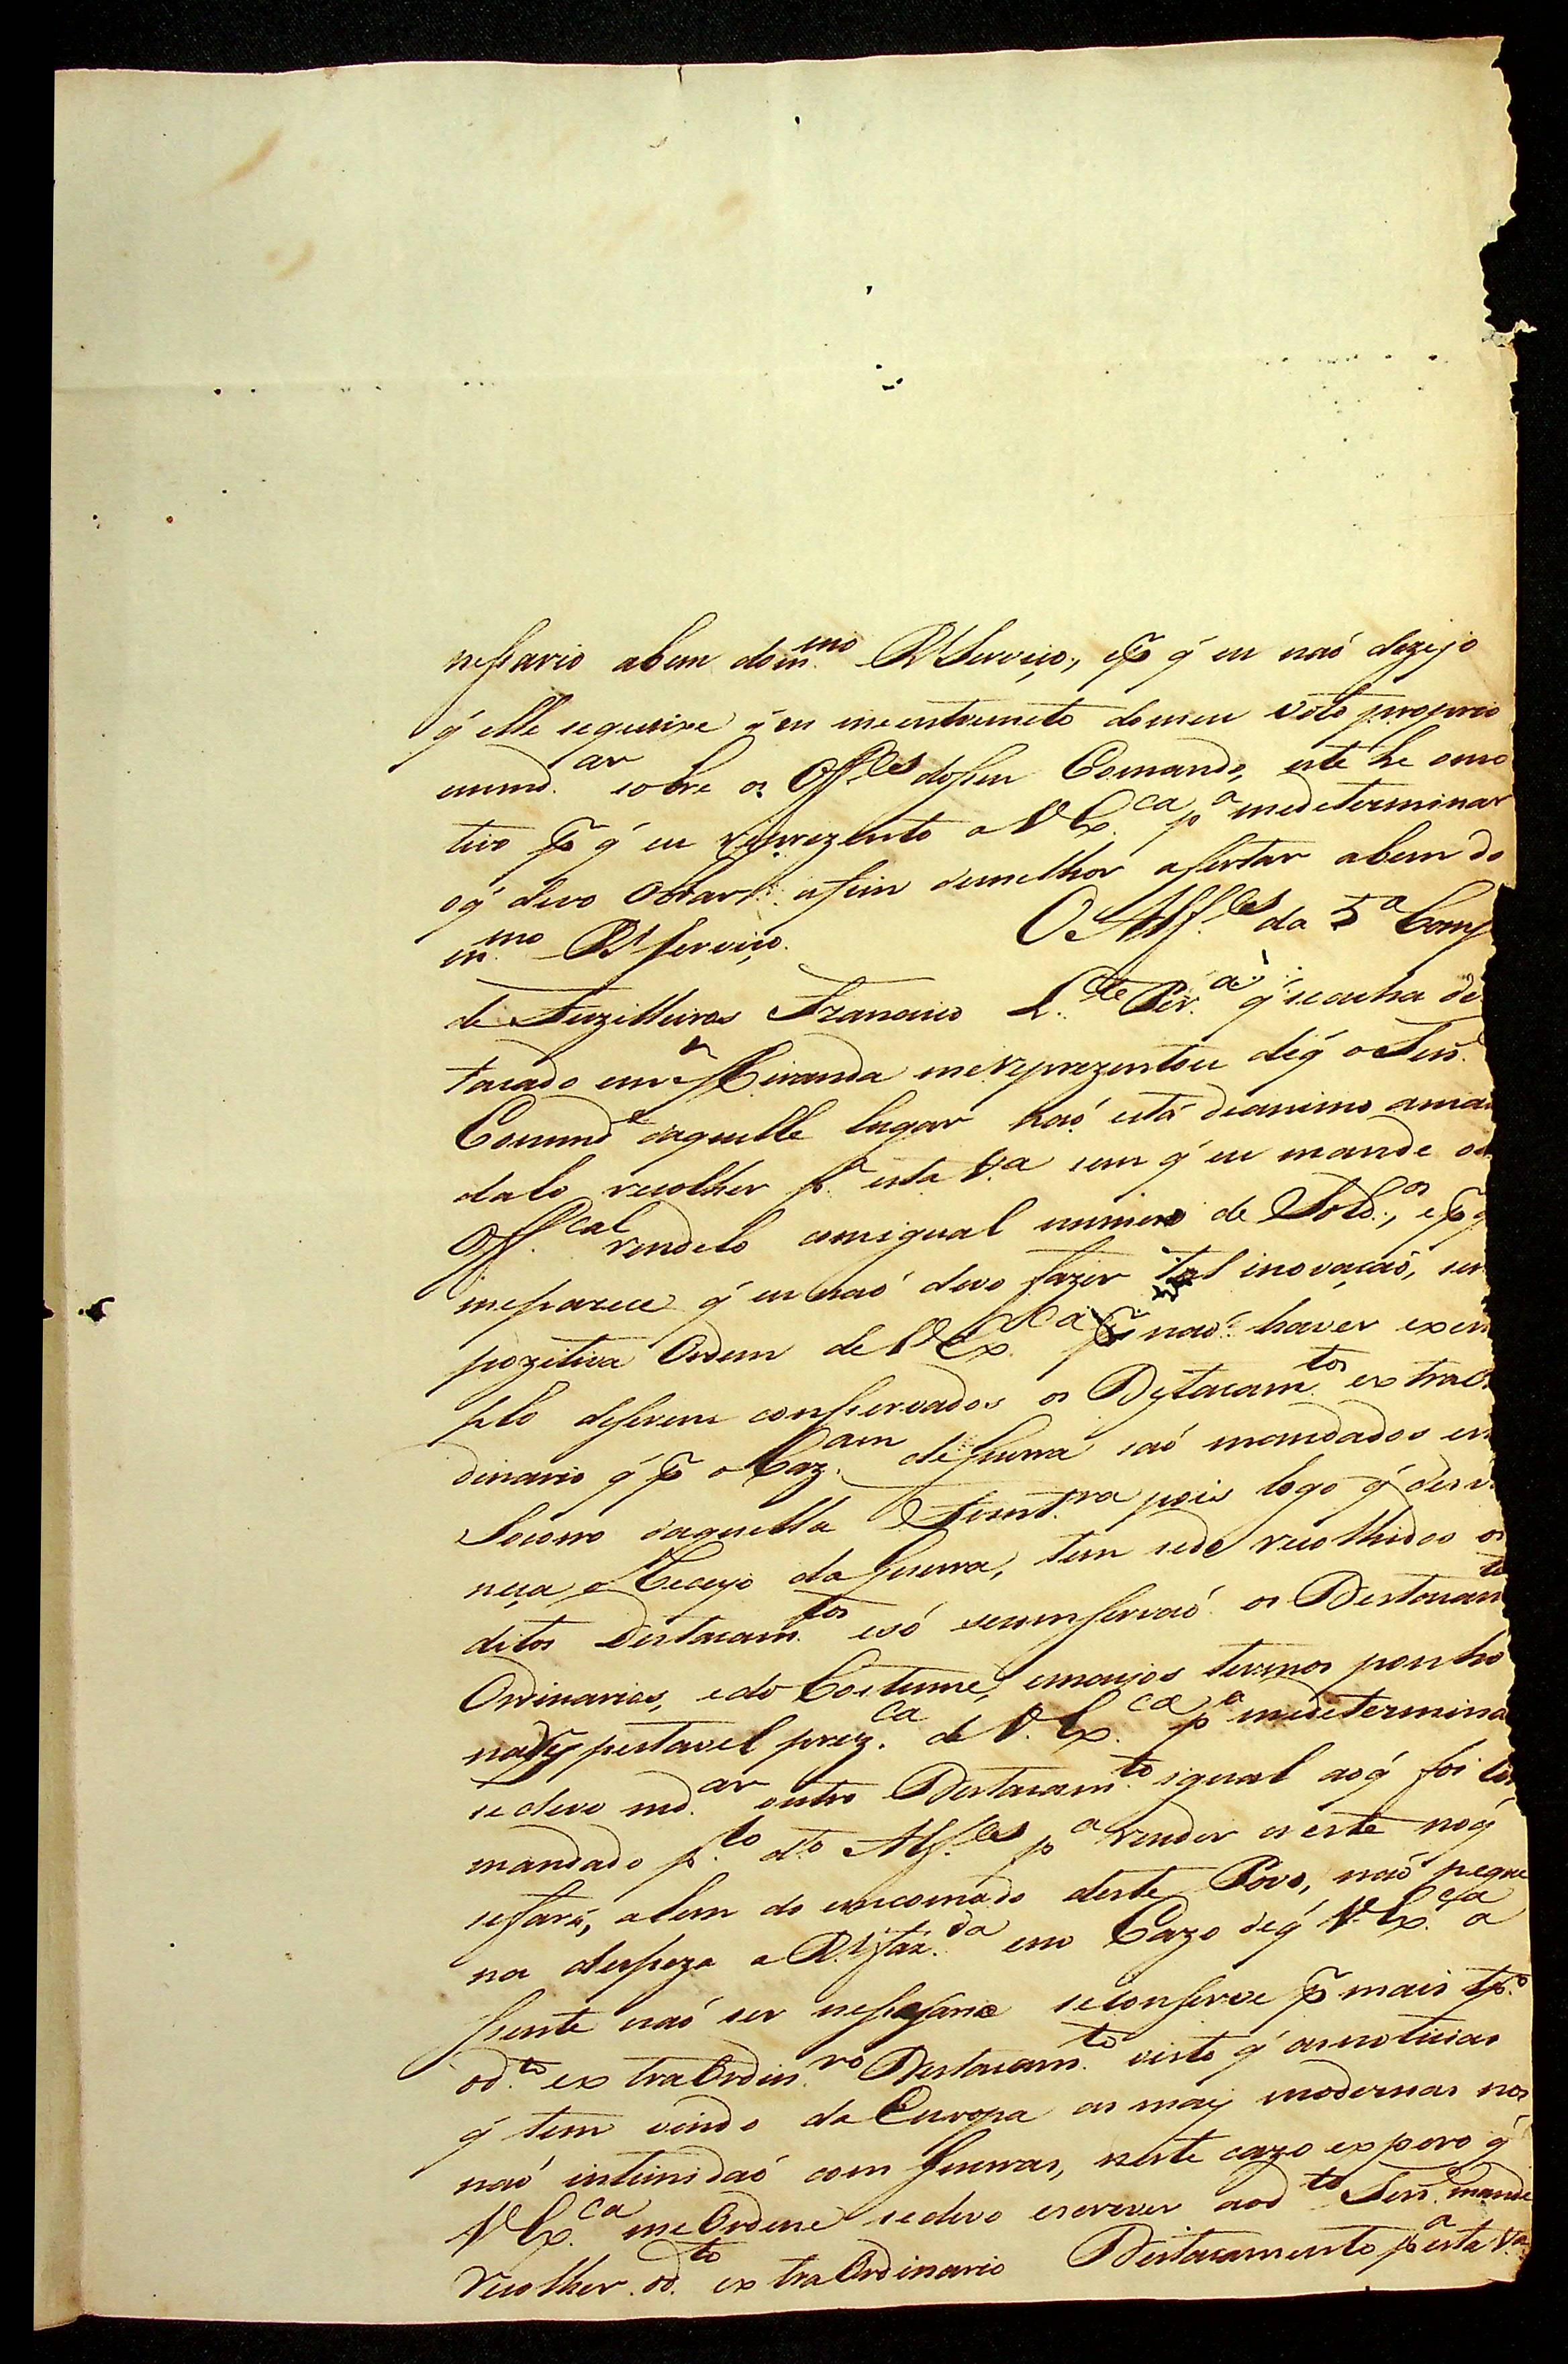 nessario abem dom.mo Rl Serviço, e p q' eu naó dezejo
q' elle se queixe q' eu me entremeto de meu voto proprio
a mand.ar sobre os Off.es do seu Comando, este he o mo
tivo p q' eu reprezento a V Ex.ca p.a me determinar
o q' devo obrar, afim de melhor asertar abem do
m.mo Rl serviço. O Alf.es da 5a Comp
de Fuzilleiros Francisco R.e Per.a q' se acha des
tacado em Miranda me reprezentou de q' o Ten.e
Comand.e daquelle lugar naó está de animo a man
dalo recolher p.a esta V.a sem q' eu mande o
Off.cal rendelo com igual numero de Sold.os, e p q'
me parece q' eu naó devo fazer tal inovaçaó, sem
pozitiva Ordem de V Ex.ca p naó haver exem
plo de serem conservados os Destacam.tos extraor
dinario q' p ocaz.am de guerra saó mandados em
Socorro daquella Front.ra pois logo q' desva
neça o Receyo da guerra, tem sido recolhidos os
ditos Destacam.tos e só se conservaó os Destacam.tos
Ordinarios, e do Costume, em cujos termos ponho
na respeitavel prez.ca de V. Ex.ca p.a me determina
se devo md.ar outro Destacam.to igual ao q' foi co
mandado p.lo d.to Alf.es p.a render a este no q'
se fará, alem do encomodo deste Povo, naó peque
na despeza a Rl faz.da em Cazo de q' V. Ex.ca a
sente naó ser nessesario se conserve p mais tp.o
o d.to extraOrdin.ro Destacam.to visto q' as noticias
q' tem vindo da Europa as mais modernas nos
naó intimidaó com guerras, neste cazo espero q'
V Ex.ca me Ordene se devo escrever ao d.to Ten.e mande
recolher o d.to extraOrdinario Destacamento p.a esta V.a